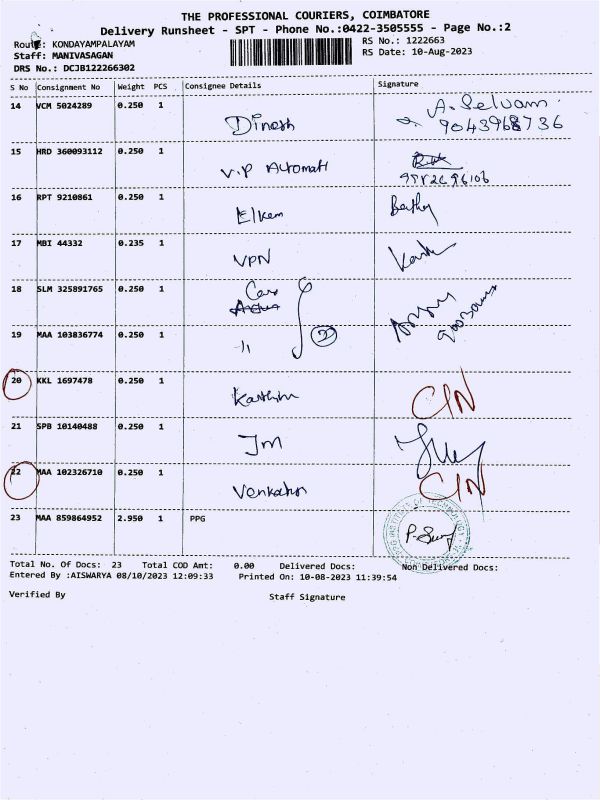 THE PROFESSIONAL COURIERS, COIMBATORE
Delivery Runsheet - SPT - Phone No.:0422-3505555 - Page No.:2
Route: KONDAYAMPALAYAM
RS No.: 1222663
Staff: MANIVASAGAN
RS Date: 10-Aug-2023
DRS No.: DCJB122266302
S No Consignment No Weight PCS Consignee Details Signature
14 VCM 5024289 0.250 1 Dinesh A. Selvam
9043968736
15 HRD 360093112 0.250 1 V.P Automati
16 RPT 9210861 0.250 1 Elkem
17 MBI 44332 0.235 1 VPN
18 SLM 325891765 0.250 1
19 MAA 103836774 0.250 1 " 2
20 KKL 1697478 0.250 1 CIN
21 SPB 10140488 0.250 1 JM
22 MAA 102326710 0.250 1 CIN
23 MAA 859864952 2.950 1 PPG
Total No. Of Docs: 23 Total COD Amt: 0.00 Delivered Docs: Non Delivered Docs:
Entered By :AISWARYA 08/10/2023 12:09:33 Printed On: 10-08-2023 11:39:54
Verified By Staff Signature